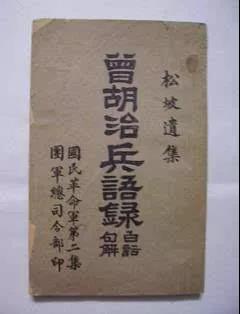 松坡遺集
曾胡治兵語録
白話
句解
國民革命軍第二集
團軍總司令部印